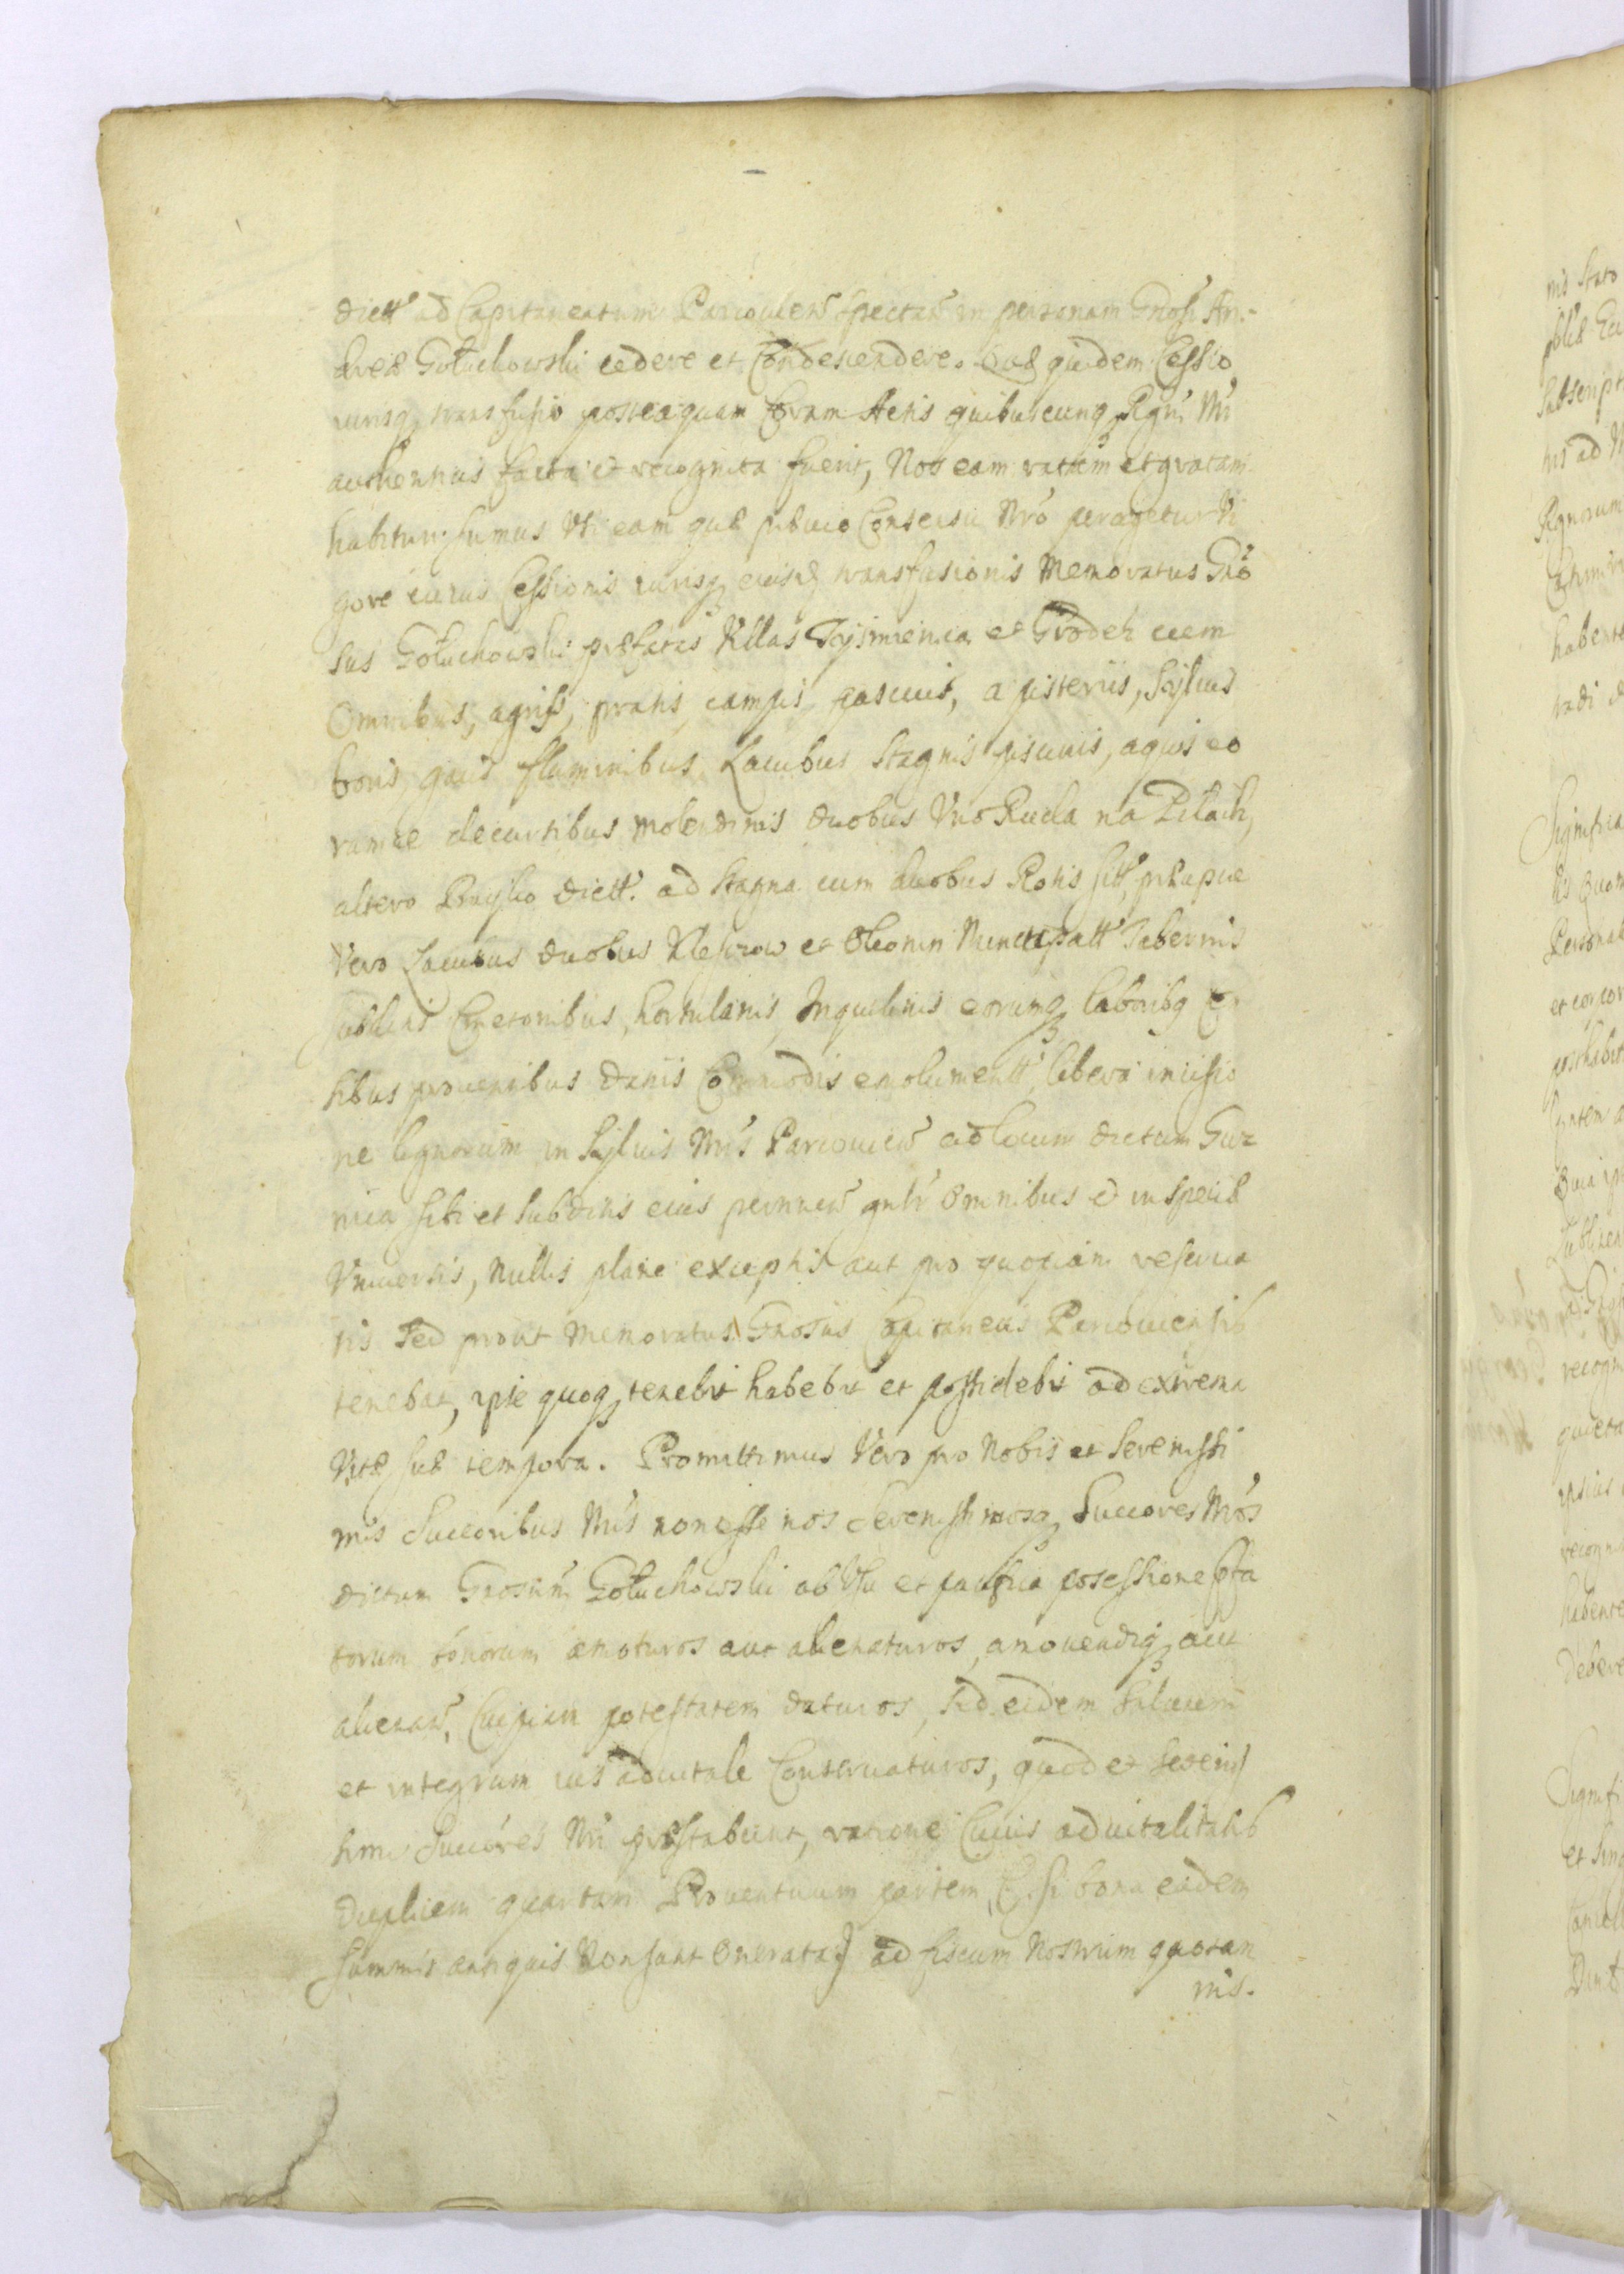 dictt ad Capitaneatum Parcouien spectan in personam Gnosi An-
dreæ Gołuchowski cedere et Condescendere. Quæ quidem Cessio
iurisq transfusio posteaquam Coram Actis quibuscunq Rgni Nri
authenticis facta et recognita fuerit, Nos eam ratam et gratam
habituri sumus Vti eam quæ præuio Consensu Nro peragetur Vi
gore cuius Cessionis iurisq eiusd transfusionis Memoratus Gno
sus Gołuchowski præfatas Villas Tysmienica et Grodek cum
Omnibus, agris, pratis campis pascuis, apisteriis, Syluis
boris gais fluminibus Lacubus Stagnis piscinis, aquis eo
rumq decursibus molendinis duobus Vno Ruda na Pilach,
altero Brzysko dictt. ad Stagna cum duobus Rotis sitt, præcipue
Vero Lacubus duobus Kleszczow et Obconin Nuncupatt Tabernis
subditis Cmetonibus, hortulanis, Inquilinis eorumq laboribq Cen
sibus prouentibus daniis Commodis emolumentt, libera incisio
ne lignorum in Syluis Nris Parcouien ad locum dictum Gur
nica sibi et subditis eius pertinen gnlr Omnibus et in specie
Vniuersis, Nullis plane exceptis aut pro quopiam reserua
tis Sed prout Memoratus Gnosus Capitaneus Parcouiensis
tenebat, ipse quoq tenebit habebit et possidebit ad extrema
Vitæ suæ tempora. Promittimus Vero pro Nobis et Serenissi
mis Succoribus Nris non esse nos Serenissimosq Succores Nros
dictum Gnosum Gołuchowski ab Vsu et pacifica possessione pfa
torum bonorum amoturos aut alienaturos, amouendiq aut
alienan, Cuipiam potestatem daturos, Sed eidem saluum
et integrum ius aduitale Conseruaturos, quod et Serenis
simi Succores Nri præstabunt, ratione Cuius aduitalitatis
duplicem quartam Prouentuum partem, (si bona eadem
summis antiquis Non sunt Onerata) ad fiscum Nostrum quotan
nis.